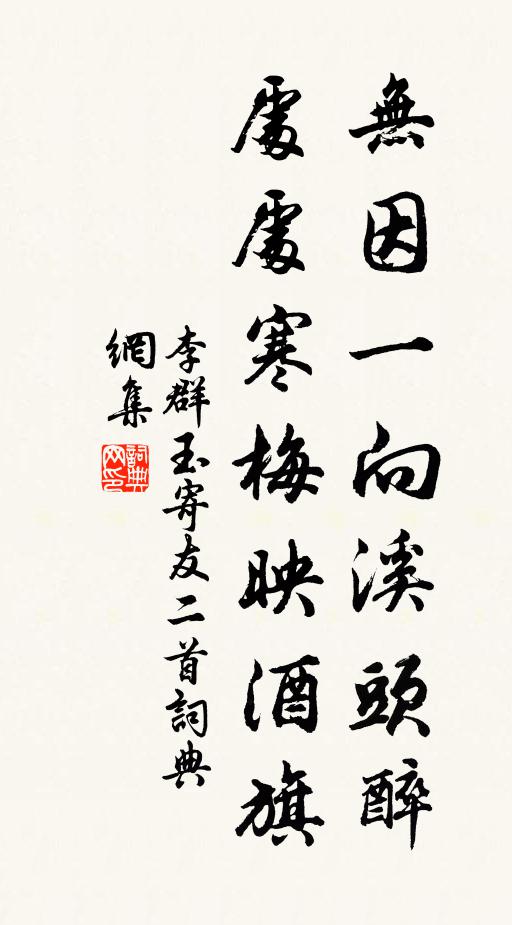 無因一向溪頭醉
處處寒梅映酒旗
李群玉寄友二首詞典
網集
詞典
网印